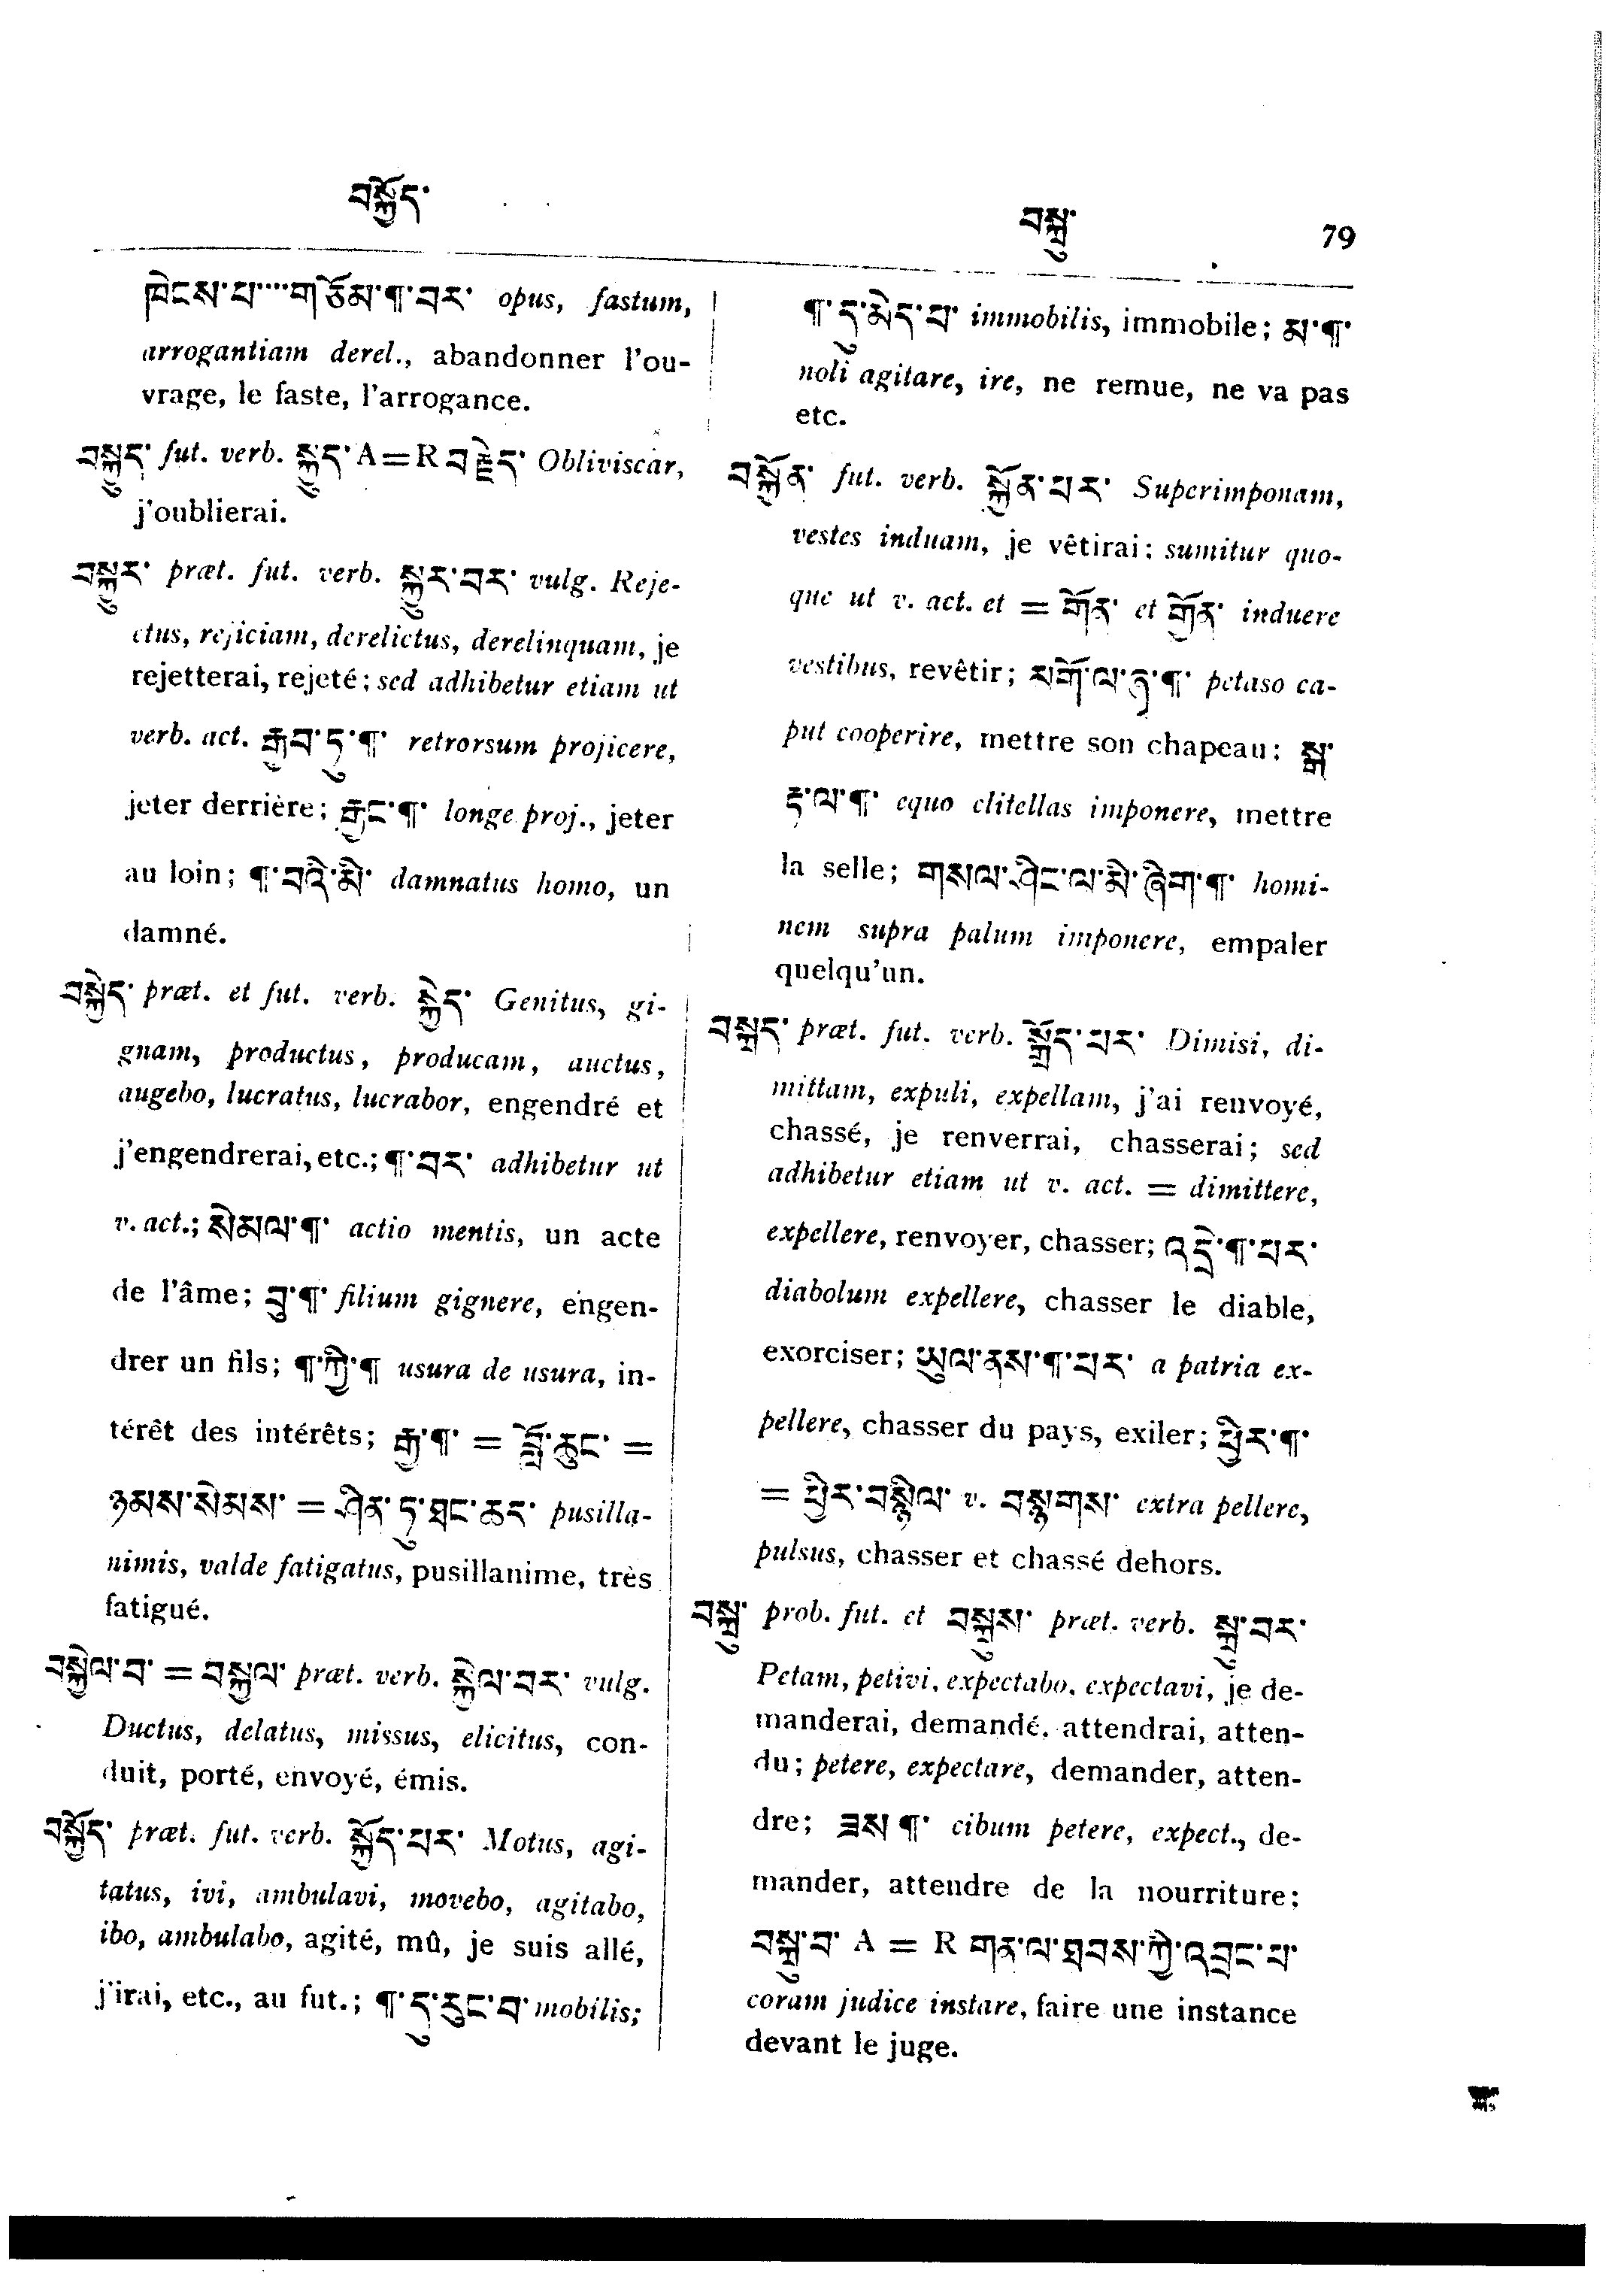 བསྐྱོད་
བསྐྲུ་ 79
ཁེངས་པ་་་་གཙོམ་¶་བར་ opus, fastum,
arrogantiam derel., abandonner l'ou-
vrage, le faste, l'arrogance.
བསྐྱུད་ fut. verb. སྐྱུད་ A=R བརྗེད་ Obliviscar,
j'oublierai.
བསྐྱུར་ præt. fut. verb. སྐྱུར་བར་ vulg. Reje-
ctus, rejiciam, derelictus, derelinquam, je
rejetterai, rejeté; sed adhibetur etiam ut
verb. act. རྒྱབ་ཏུ་¶་ retrorsum projicere,
jeter derrière; རྒྱང་¶་ longe proj., jeter
au loin; ¶་བའི་མི་ damnatus homo, un
damné.
བསྐྱེད་ præt. et fut. verb. སྐྱེད་ Genitus, gi-
gnam, productus, producam, auctus,
augebo, lucratus, lucrabor, engendré et
j'engendrerai, etc.; ¶་བར་ adhibetur ut
v. act.; སེམལ་¶་ actio mentis, un acte
de l'âme; བུ་¶་ filium gignere, engen-
drer un fils; ¶་ཀྱི་¶ usura de usura, in-
térêt des intérêts; རྒྱ་¶་ = བློ་ཆུང་ =
ཉམས་སེམས་ = ཤིན་ཏུ་ཐང་ཆད་ pusilla-
nimis, valde fatigatus, pusillanime, très
fatigué.
བསྐྱེལ་བ་ = བསྐྱལ་ præt. verb. སྐྱེལ་བར་ vulg.
Ductus, delatus, missus, elicitus, con-
duit, porté, envoyé, émis.
བསྐྱོད་ præt. fut. verb. སྐྱོད་པར་ Motus, agi-
tatus, ivi, ambulavi, movebo, agitabo,
ibo, ambulabo, agité, mû, je suis allé,
j'irai, etc., au fut.; ¶་དུ་རུང་བ་ mobilis;
¶་དུ་མེད་བ་ immobilis, immobile; མ་¶་
noli agitare, ire, ne remue, ne va pas
etc.
བསྐྱོན་ fut. verb. སྐྱོན་པར་ Superimponam,
vestes induam, je vêtirai; sumitur quo-
que ut v. act. et = གོན་ et གྱོན་ induere
vestibus, revêtir; མགོ་ལ་ཉྭ་¶་ petaso ca-
put cooperire, mettre son chapeau; སྒ་
རྟ་ལ་¶་ equo clitellas imponere, mettre
la selle; གསལ་ཤིང་ལ་མི་ཞིག་¶་ homi-
nem supra palum imponere, empaler
quelqu'un.
བསྐྲད་ præt. fut. verb. སྐྲོད་པར་ Dimisi, di-
mittam, expuli, expellam, j'ai renvoyé,
chassé, je renverrai, chasserai; sed
adhibetur etiam ut v. act. = dimittere,
expellere, renvoyer, chasser; འདྲེ་¶་པར་
diabolum expellere, chasser le diable,
exorciser; ཡུལ་ནས་¶་པར་ a patria ex-
pellere, chasser du pays, exiler; ཕྱིར་¶་
= ཕྱིར་བསྙིལ་ v. བསྙགས་ extra pellere,
pulsus, chasser et chassé dehors.
བསྐྲུ་ prob. fut. et བསྐྲུས་ præt. verb. སྐྲུ་བར་
Petam, petivi, expectabo, expectavi, je de-
manderai, demandé, attendrai, atten-
du; petere, expectare, demander, atten-
dre; ཟས¶་ cibum petere, expect., de-
mander, attendre de la nourriture;
བསྐྲུ་བ་ A = R གན་ལ་ཐབས་ཀྱི་འབྲང་པ་
coram judice instare, faire une instance
devant le juge.